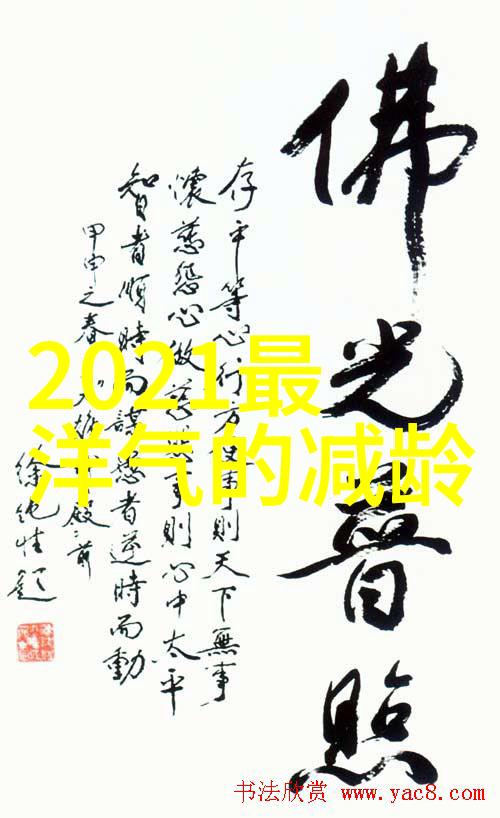 佛光普照
存平等心行方便事則天下無事
懷慈悲心做慈悲事則心中太平
智者順時而謀愚者逆時而動
甲申之春
徐純性題
2021最
洋气的减龄
书法欣赏 www.yac8.com